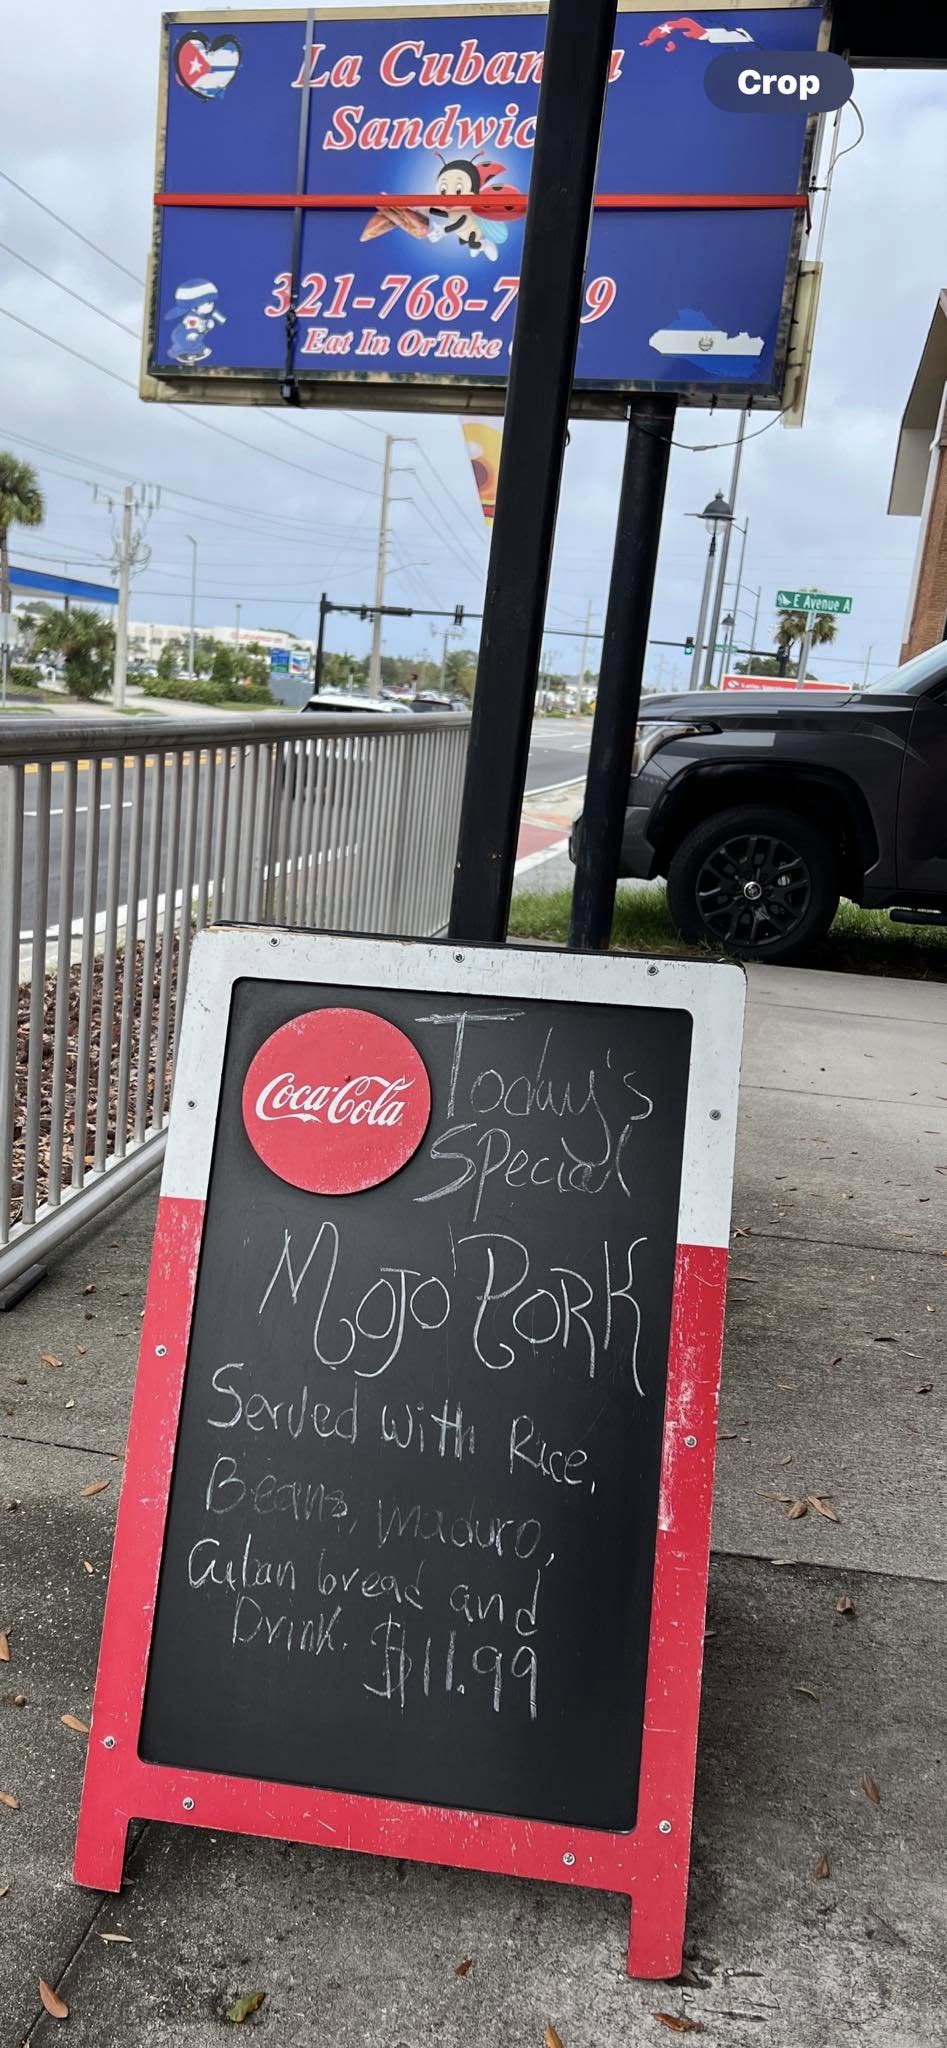 Crop
La Cuban
Sandwic
321-768-7 9
Eat In OrTake
E Avenue A
Coca-Cola
Today's
Special
Mojo Pork
Served with Rice,
Beans, maduro,
Cuban bread and
Drink. $11.99